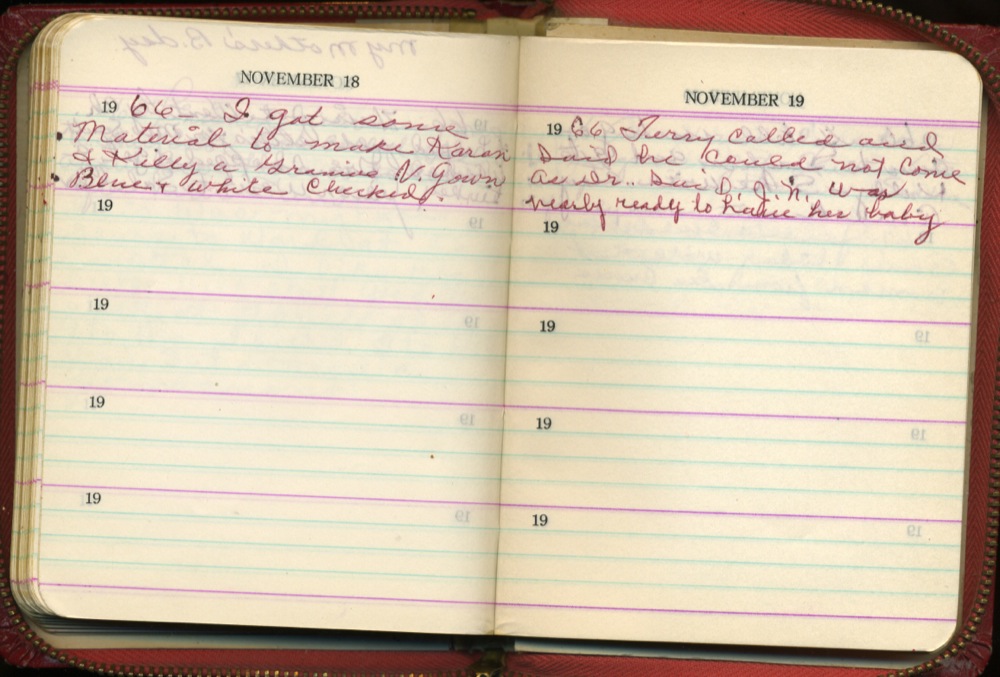 NOVEMBER 18
19 66 - I got some
Material to make Karan
& Kelly a Grannie N. Gown
Blue & white Checked.
19
19
19
19
NOVEMBER 19
19 66 Terry called and
Said he could not Come
as Dr. Said J. N. was
nearly ready to have her baby
19
19
19
19